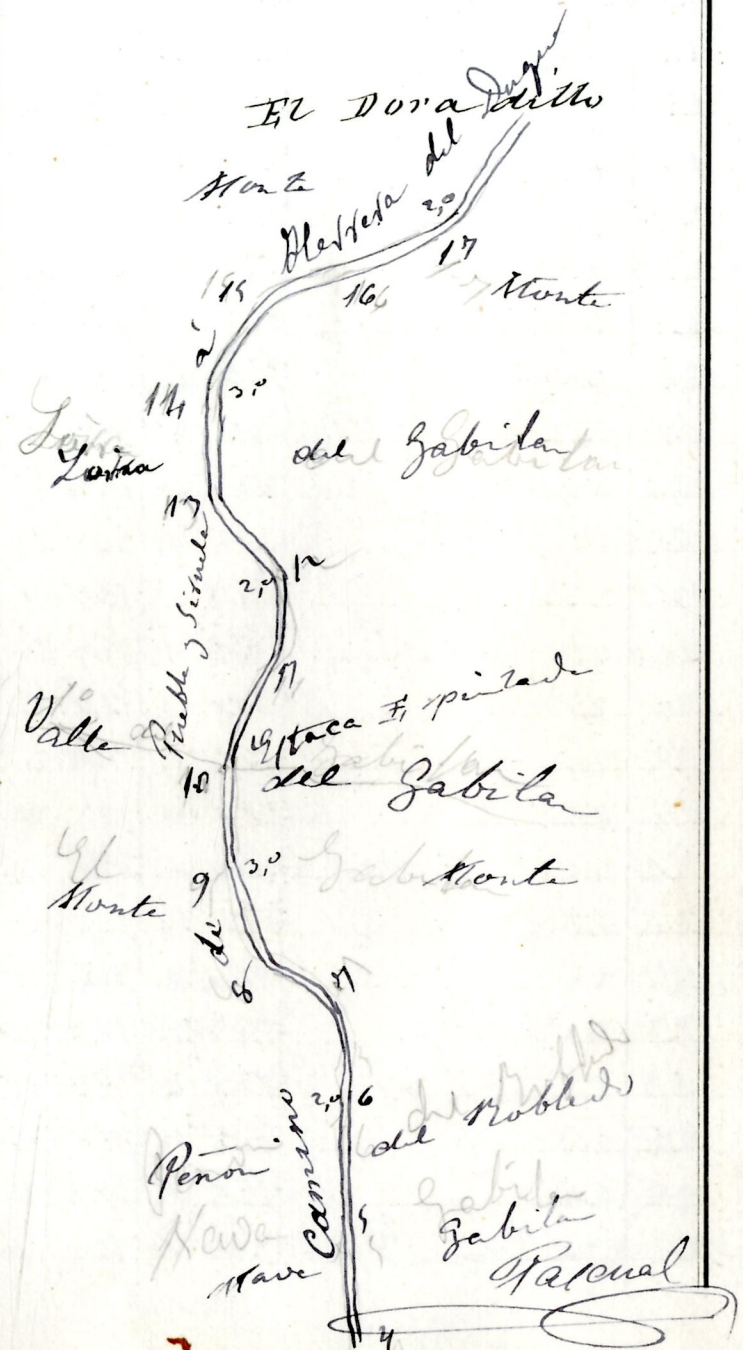 El Doradillo
Herrera del Duque
Monte
2,0
17
15
16
Monte
á
14
3,0
Loma
del Gabilan
13
2,0
12
Puebla y Siruela
11
Valle
Estaca E pintada
10
del Gabilan
3,0
9
Monte
Monte
de
8
7
2,0
6
Peñon
del Robledo
Camino
5
Gabilan
Nava
Pascual
4